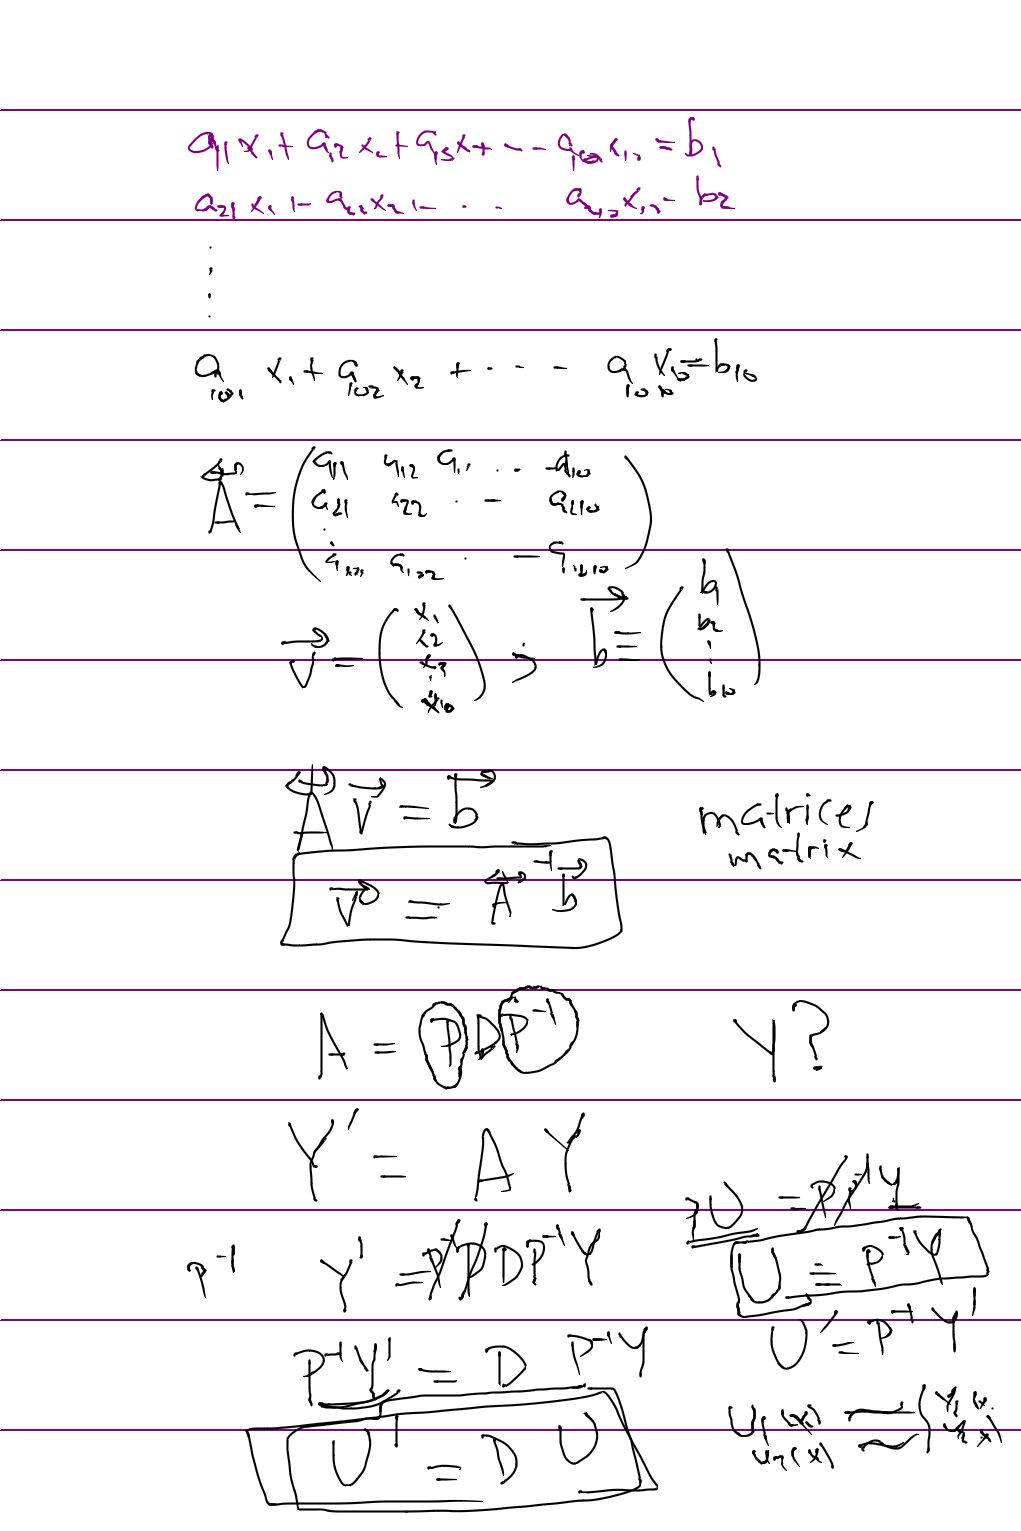 a11 x1 + a12 x2 + a13 x + -- - a110 x10 = b1
a21 x1 + a22 x2 + - . . a210 x10 = b2
⋮
a101 x1 + a102 x2 + · - - - a1010 x10 = b10
A = ( a11 a12 a1, . . - a110
a21 a22 . - a210
⋮
a101 a102 . - a1010 )
v = ( x1 x2 x3 ⋮ x10 ) ; b ≡ ( b1 b2 ⋮ b10 )
A v = b
matrices
matrix
v = A^-1 b
A = P D P^-1 Y?
Y' = A Y
PU = P P^-1 Y
P^-1 Y' = P^-1 P D P^-1 Y
U = P^-1 Y
P^-1 Y' = D P^-1 Y
U' = P^-1 Y'
U' = D U
U1(x)
U2(x)